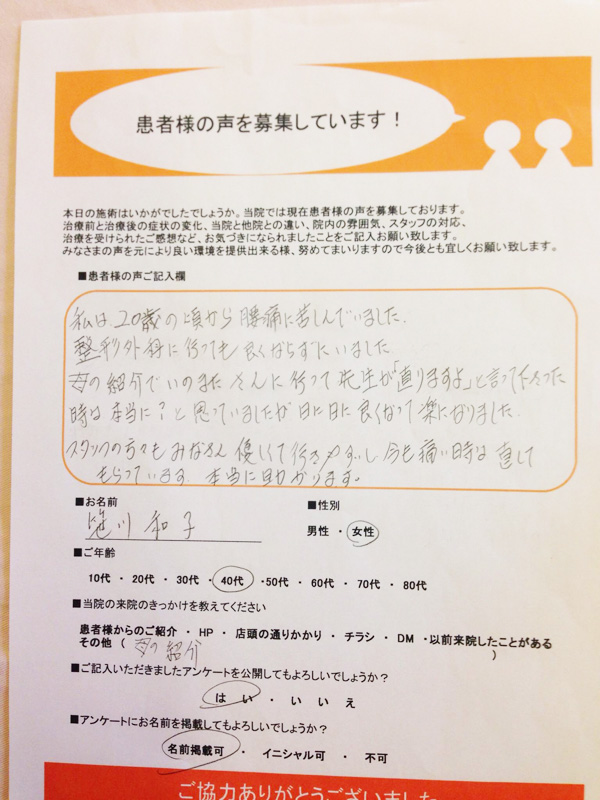 患者様の声を募集しています！
本日の施術はいかがでしたでしょうか。当院では現在患者様の声を募集しております。
治療前と治療後の症状の変化、当院と他院との違い、院内の雰囲気、スタッフの対応、
治療を受けられたご感想など、お気づきになられましたことをご記入お願い致します。
みなさまの声を元により良い環境を提供出来る様、努めてまいりますので今後とも宜しくお願い致します。
■患者様の声ご記入欄
私は20歳の頃から腰痛に苦しんでいました。
整形外科に行っても良くならずにいました。
母の紹介でいのまたさんに行って先生が「直りますよ」と言って下さった
時は本当に？と思っていましたが日に日に良くなって楽になりました。
スタッフの方々もみなさん優しくて行きやすいし今も痛い時は直して
もらっています。本当に助かります。
■お名前
笹川 和子
■性別
男性 ・ 女性
■ご年齢
10代 ・ 20代 ・ 30代 ・ 40代 ・50代 ・ 60代 ・ 70代 ・ 80代
■当院の来院のきっかけを教えてください
患者様からのご紹介 ・ HP ・ 店頭の通りかかり ・ チラシ ・ DM ・以前来院したことがある
その他（ 母の紹介 ）
■ご記入いただきましたアンケートを公開してもよろしいでしょうか？
はい ・ いいえ
■アンケートにお名前を掲載してもよろしいでしょうか？
名前掲載可 ・ イニシャル可 ・ 不可
ご協力ありがとうございました